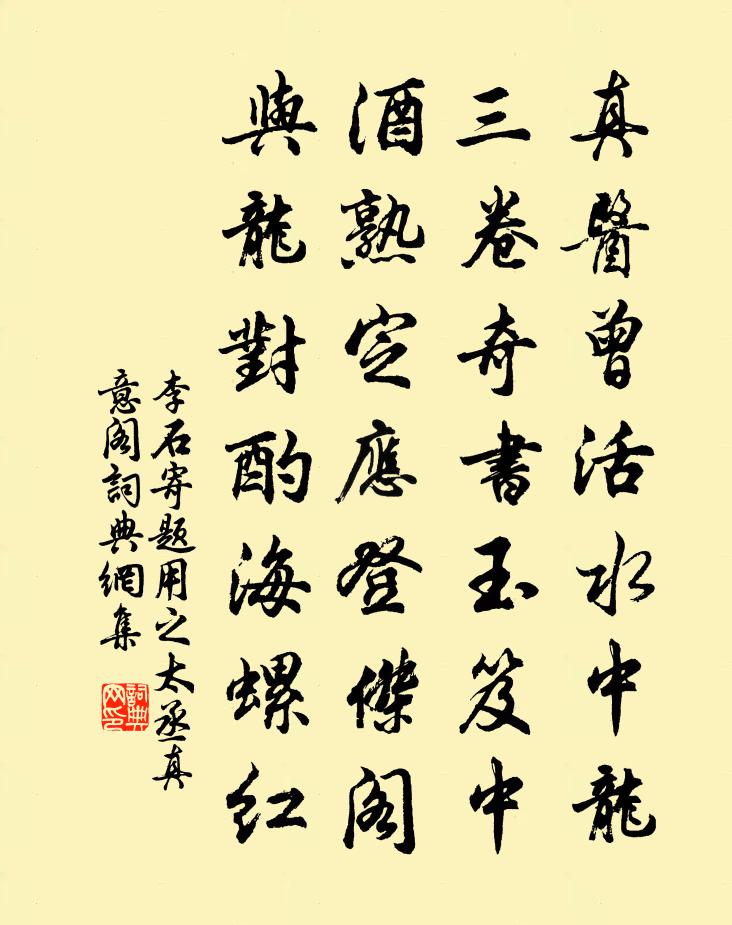 真醫曾活水中龍
三卷奇書玉笈中
酒熟定應登傑閣
與龍對酌海螺紅
李石寄題用之太丞真
意閣詞典網集
詞典
网印